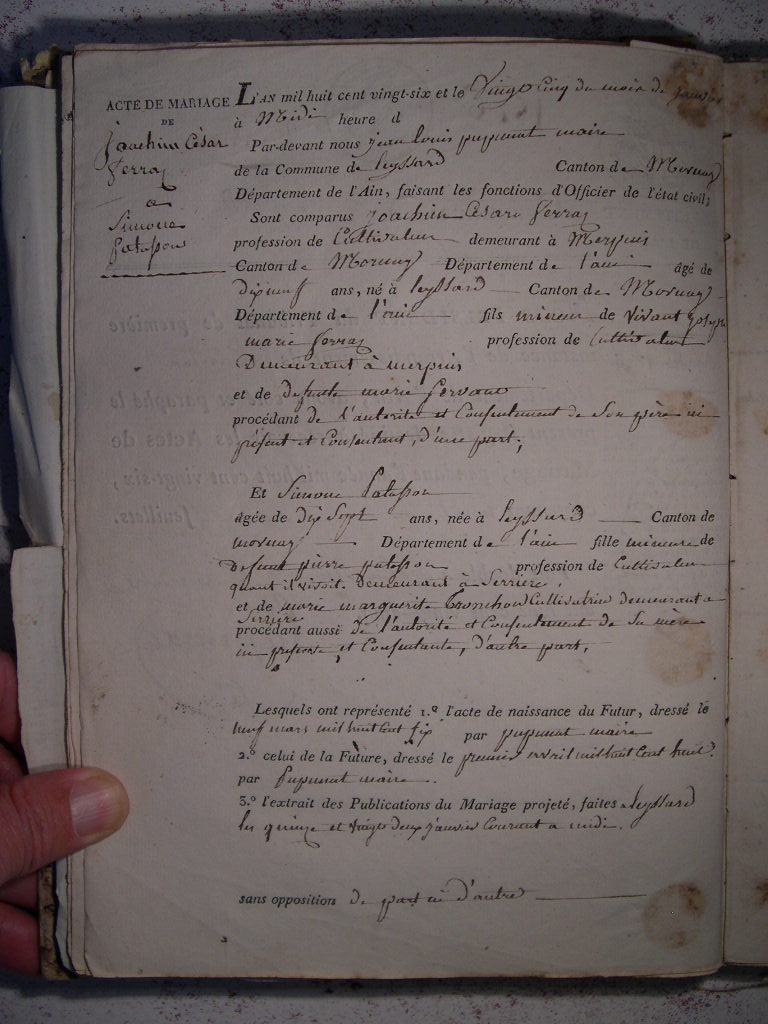 ACTE DE MARIAGE
DE
joachim César
ferraz
a
Simone
patasson
L'AN mil huit cent vingt-six et le vingt cinq du mois de janvier
à Midi heure d
Par-devant nous jean louis pupunat maire
de la Commune de leyssard Canton de Mornay
Département de l'Ain, faisant les fonctions d'Officier de l'état civil;
Sont comparus joachim Césard ferraz
profession de Cultivateur demeurant à Merpuis
Canton de Mornay Département de l'ain âgé de
dix neuf ans, né à leyssard Canton de Mornay
Département de l'ain fils mineur de vivant joseph
marie ferraz profession de Cultivateur
Demeurant à merpuis
et de defunte marie servant
procédant de l'autorité et Consentement de Son père ici
présent et Consentant, d'une part;
Et Simone Patasson
âgée de dix Sept ans, née à leyssard Canton de
mornay Département de l'ain fille mineure de
Defunt pierre patasson profession de Cultivateur
quant il vivoit. Demeurant à Serrière,
et de marie marguerite Tronchon Cultivatrice demeurant a
Serrière
procédant aussi de l'autorité et Consentement de Sa mère
ici présente, et Consentante, d'autre part,
Lesquels ont représenté 1.º l'acte de naissance du Futur, dressé le
neuf mars mil huit Cent six par pupunat maire
2.º celui de la Future, dressé le premier avril mil huit Cent huit
par pupunat maire.
3.º l'extrait des Publications du Mariage projeté, faites a leyssard
les quinze et vingt deux janvier Courant a midi.
sans opposition de part ni d'autre